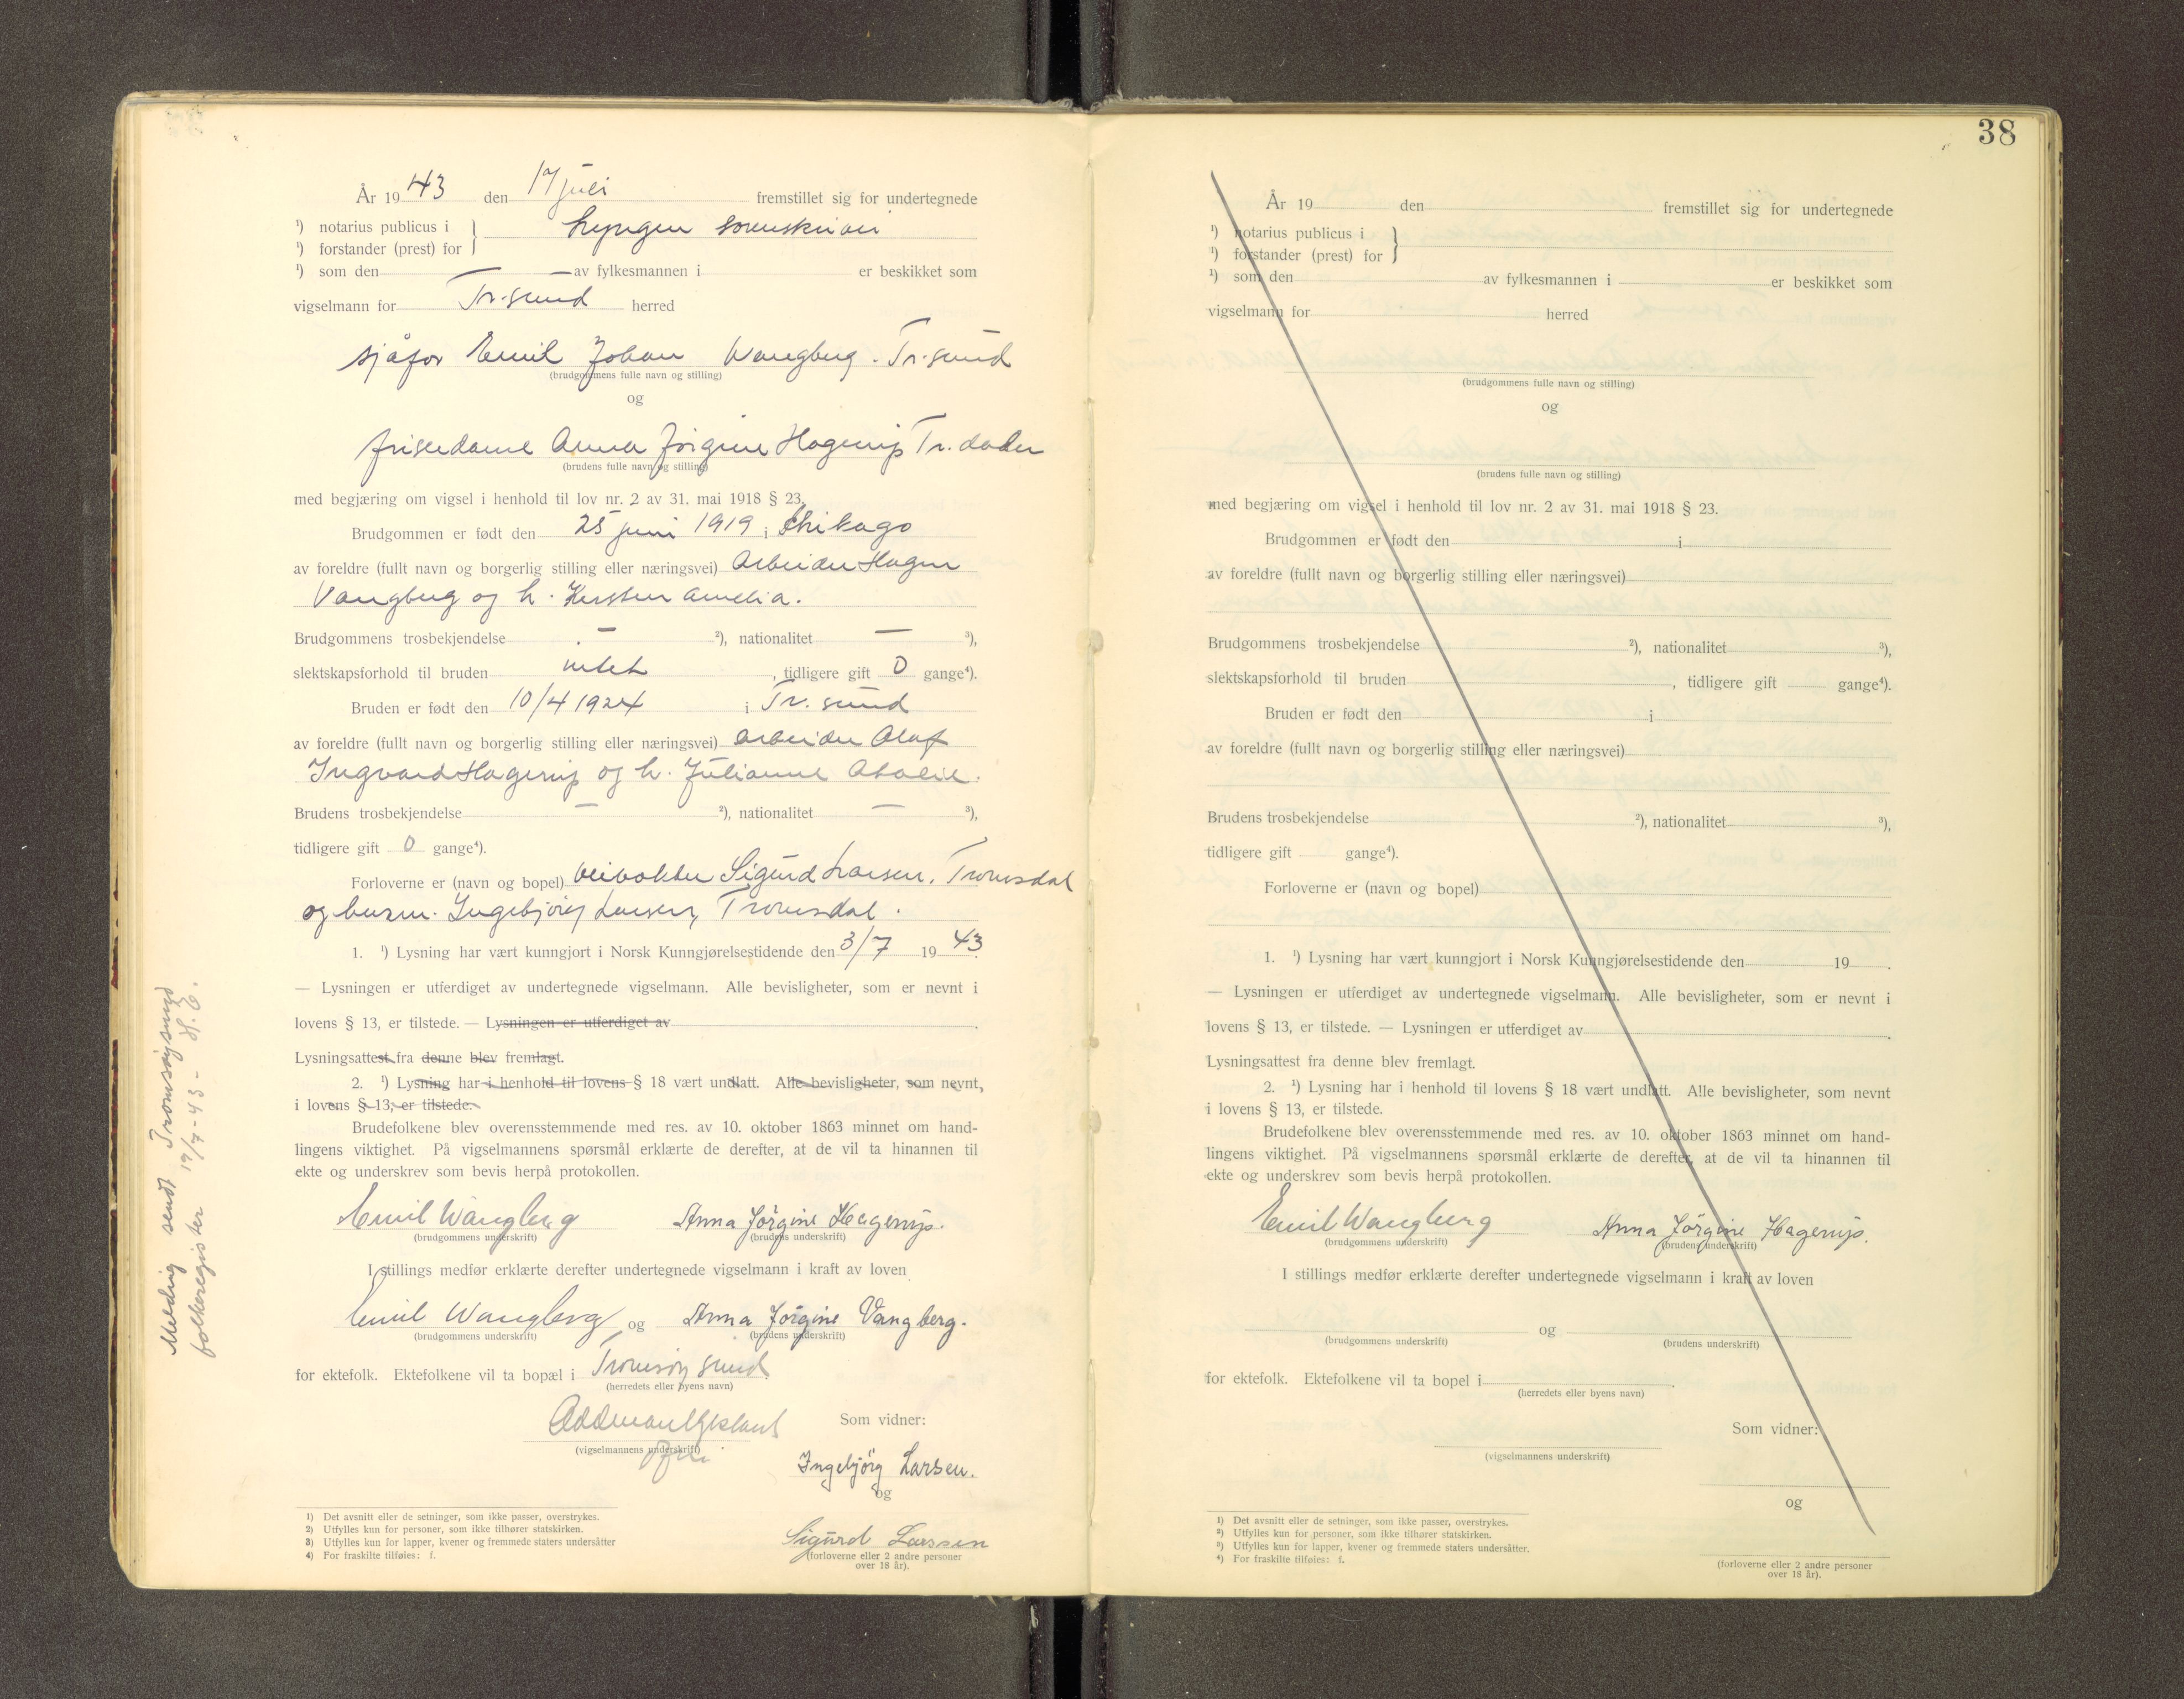 År 1943 den 17 juli fremstillet sig for undertegnede
¹) notarius publicus i } Lyngen sorenskriveri
¹) forstander (prest) for
¹) som den — av fylkesmannen i er beskikket som
vigselmann for Tr.sund herred
sjåfør Emil Johan Wangberg. Tr.sund
(brudgommens fulle navn og stilling)
og
friserdame Anna Jörgine Hagerup Tr.dalen
(brudens fulle navn og stilling)
med begjæring om vigsel i henhold til lov nr. 2 av 31. mai 1918 § 23.
Brudgommen er født den 25 juni 1919 i Chikago
av foreldre (fullt navn og borgerlig stilling eller næringsvei) Arbeider Hagen
Vangberg og h. Kirsten Amelia.
Brudgommens trosbekjendelse — ²), nationalitet — ³),
slektskapsforhold til bruden intet, tidligere gift 0 gange⁴).
Bruden er født den 10/4 1924 i Tr.sund
av foreldre (fullt navn og borgerlig stilling eller næringsvei) arbeider Olaf
Ingvard Hagerup og h. Julianne
Brudens trosbekjendelse — ²), nationalitet — ³),
tidligere gift 0 gange⁴).
Forloverne er (navn og bopel) veivokter Sigurd Larsen, Tromsdal
og Ingebjörg Larsen, Tromsdal.
1. ¹) Lysning har vært kunngjort i Norsk Kunngjørelsestidende den 3/7 1943.
— Lysningen er utferdiget av undertegnede vigselmann. Alle bevisligheter, som er nevnt i
lovens § 13, er tilstede. — Lysningen er utferdiget av
Lysningsattest fra denne blev fremlagt.
2. ¹) Lysning har i henhold til lovens § 18 vært undlatt. Alle bevisligheter, som nevnt,
i lovens § 13, er tilstede.
Brudefolkene blev overensstemmende med res. av 10. oktober 1863 minnet om hand-
lingens viktighet. På vigselmannens spørsmål erklærte de derefter, at de vil ta hinannen til
ekte og underskrev som bevis herpå protokollen.
Emil Wangberg Anna Jörgine Hagerup.
(brudgommens underskrift) (brudens underskrift)
I stillings medfør erklærte derefter undertegnede vigselmann i kraft av loven
Emil Wangberg og Anna Jörgine Vangberg.
(brudgommens underskrift) (brudens underskrift)
for ektefolk. Ektefolkene vil ta bopæl i Tromsøysund
(herredets eller byens navn)
Som vidner:
(vigselmannens underskrift)
Ingebjörg Larsen.
og
Sigurd Larssen
(forloverne eller 2 andre personer
over 18 år).
1) Det avsnitt eller de setninger, som ikke passer, overstrykes.
2) Utfylles kun for personer, som ikke tilhører statskirken.
3) Utfylles kun for lapper, kvener og fremmede staters undersåtter
4) For fraskilte tilføies: f.
Melding sendt Tromsøysund
folkeregister 19/7-43 - H.E.
38
År 19 den fremstillet sig for undertegnede
¹) notarius publicus i }
¹) forstander (prest) for
¹) som den av fylkesmannen i er beskikket som
vigselmann for herred
(brudgommens fulle navn og stilling)
og
(brudens fulle navn og stilling)
med begjæring om vigsel i henhold til lov nr. 2 av 31. mai 1918 § 23.
Brudgommen er født den i
av foreldre (fullt navn og borgerlig stilling eller næringsvei)
Brudgommens trosbekjendelse ²), nationalitet ³),
slektskapsforhold til bruden , tidligere gift gange⁴).
Bruden er født den i
av foreldre (fullt navn og borgerlig stilling eller næringsvei)
Brudens trosbekjendelse ²), nationalitet ³),
tidligere gift gange⁴).
Forloverne er (navn og bopel)
1. ¹) Lysning har vært kunngjort i Norsk Kunngjørelsestidende den 19 .
— Lysningen er utferdiget av undertegnede vigselmann. Alle bevisligheter, som er nevnt i
lovens § 13, er tilstede. — Lysningen er utferdiget av .
Lysningsattest fra denne blev fremlagt.
2. ¹) Lysning har i henhold til lovens § 18 vært undlatt. Alle bevisligheter, som nevnt
i lovens § 13, er tilstede.
Brudefolkene blev overensstemmende med res. av 10. oktober 1863 minnet om hand-
lingens viktighet. På vigselmannens spørsmål erklærte de derefter, at de vil ta hinannen til
ekte og underskrev som bevis herpå protokollen.
Emil Wangberg Anna Jörgine Hagerup.
(brudgommens underskrift) (brudens underskrift)
I stillings medfør erklærte derefter undertegnede vigselmann i kraft av loven
og
(brudgommens underskrift) (brudens underskrift)
for ektefolk. Ektefolkene vil ta bopel i .
(herredets eller byens navn)
Som vidner:
(vigselmannens underskrift)
og
(forloverne eller 2 andre personer
over 18 år).
1) Det avsnitt eller de setninger, som ikke passer, overstrykes.
2) Utfylles kun for personer, som ikke tilhører statskirken.
3) Utfylles kun for lapper, kvener og fremmede staters undersåtter.
4) For fraskilte tilføies: f.